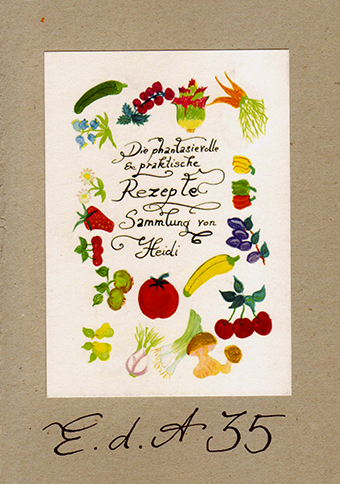 Die phantasievolle
& praktische
Rezepte
Sammlung von
Heidi
E. d. A 35